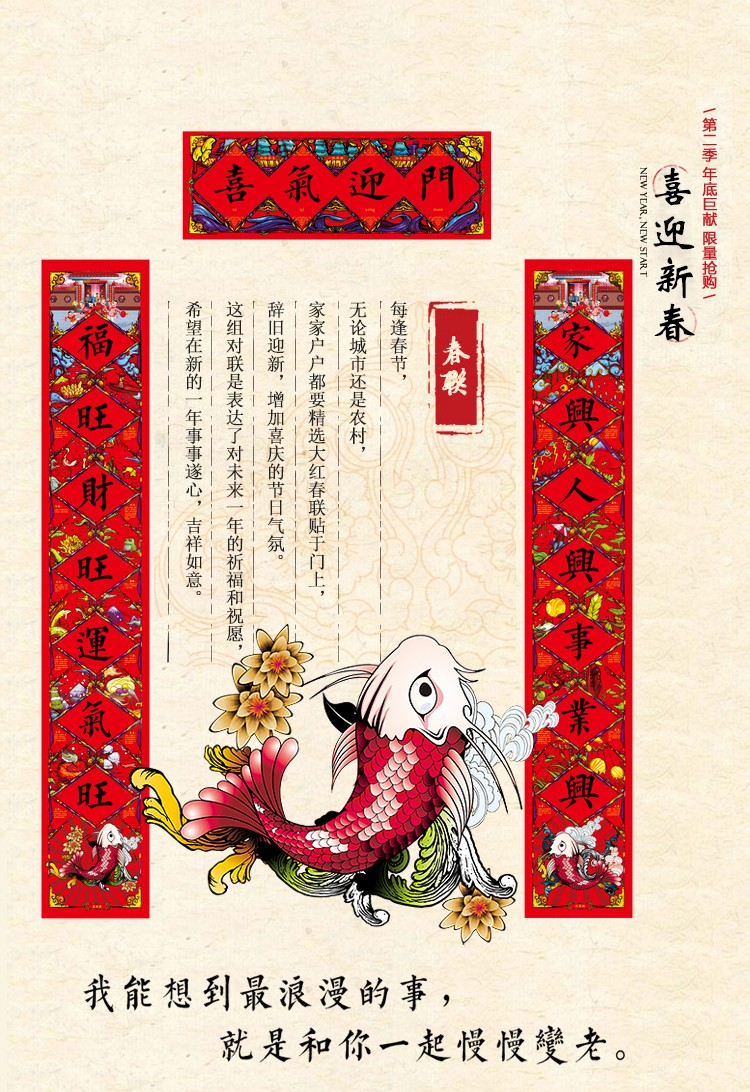 第二季 年底巨献 限量抢购
喜迎新春
NEW YEAR, NEW START
喜氣迎門
家興人興事業興
福旺財旺運氣旺
春联
每逢春节，
无论城市还是农村，
家家户户都要精选大红春联贴于门上，
辞旧迎新，增加喜庆的节日气氛。
这组对联是表达了对未来一年的祈福和祝愿，
希望在新的一年事事遂心，吉祥如意。
我能想到最浪漫的事，
就是和你一起慢慢變老。